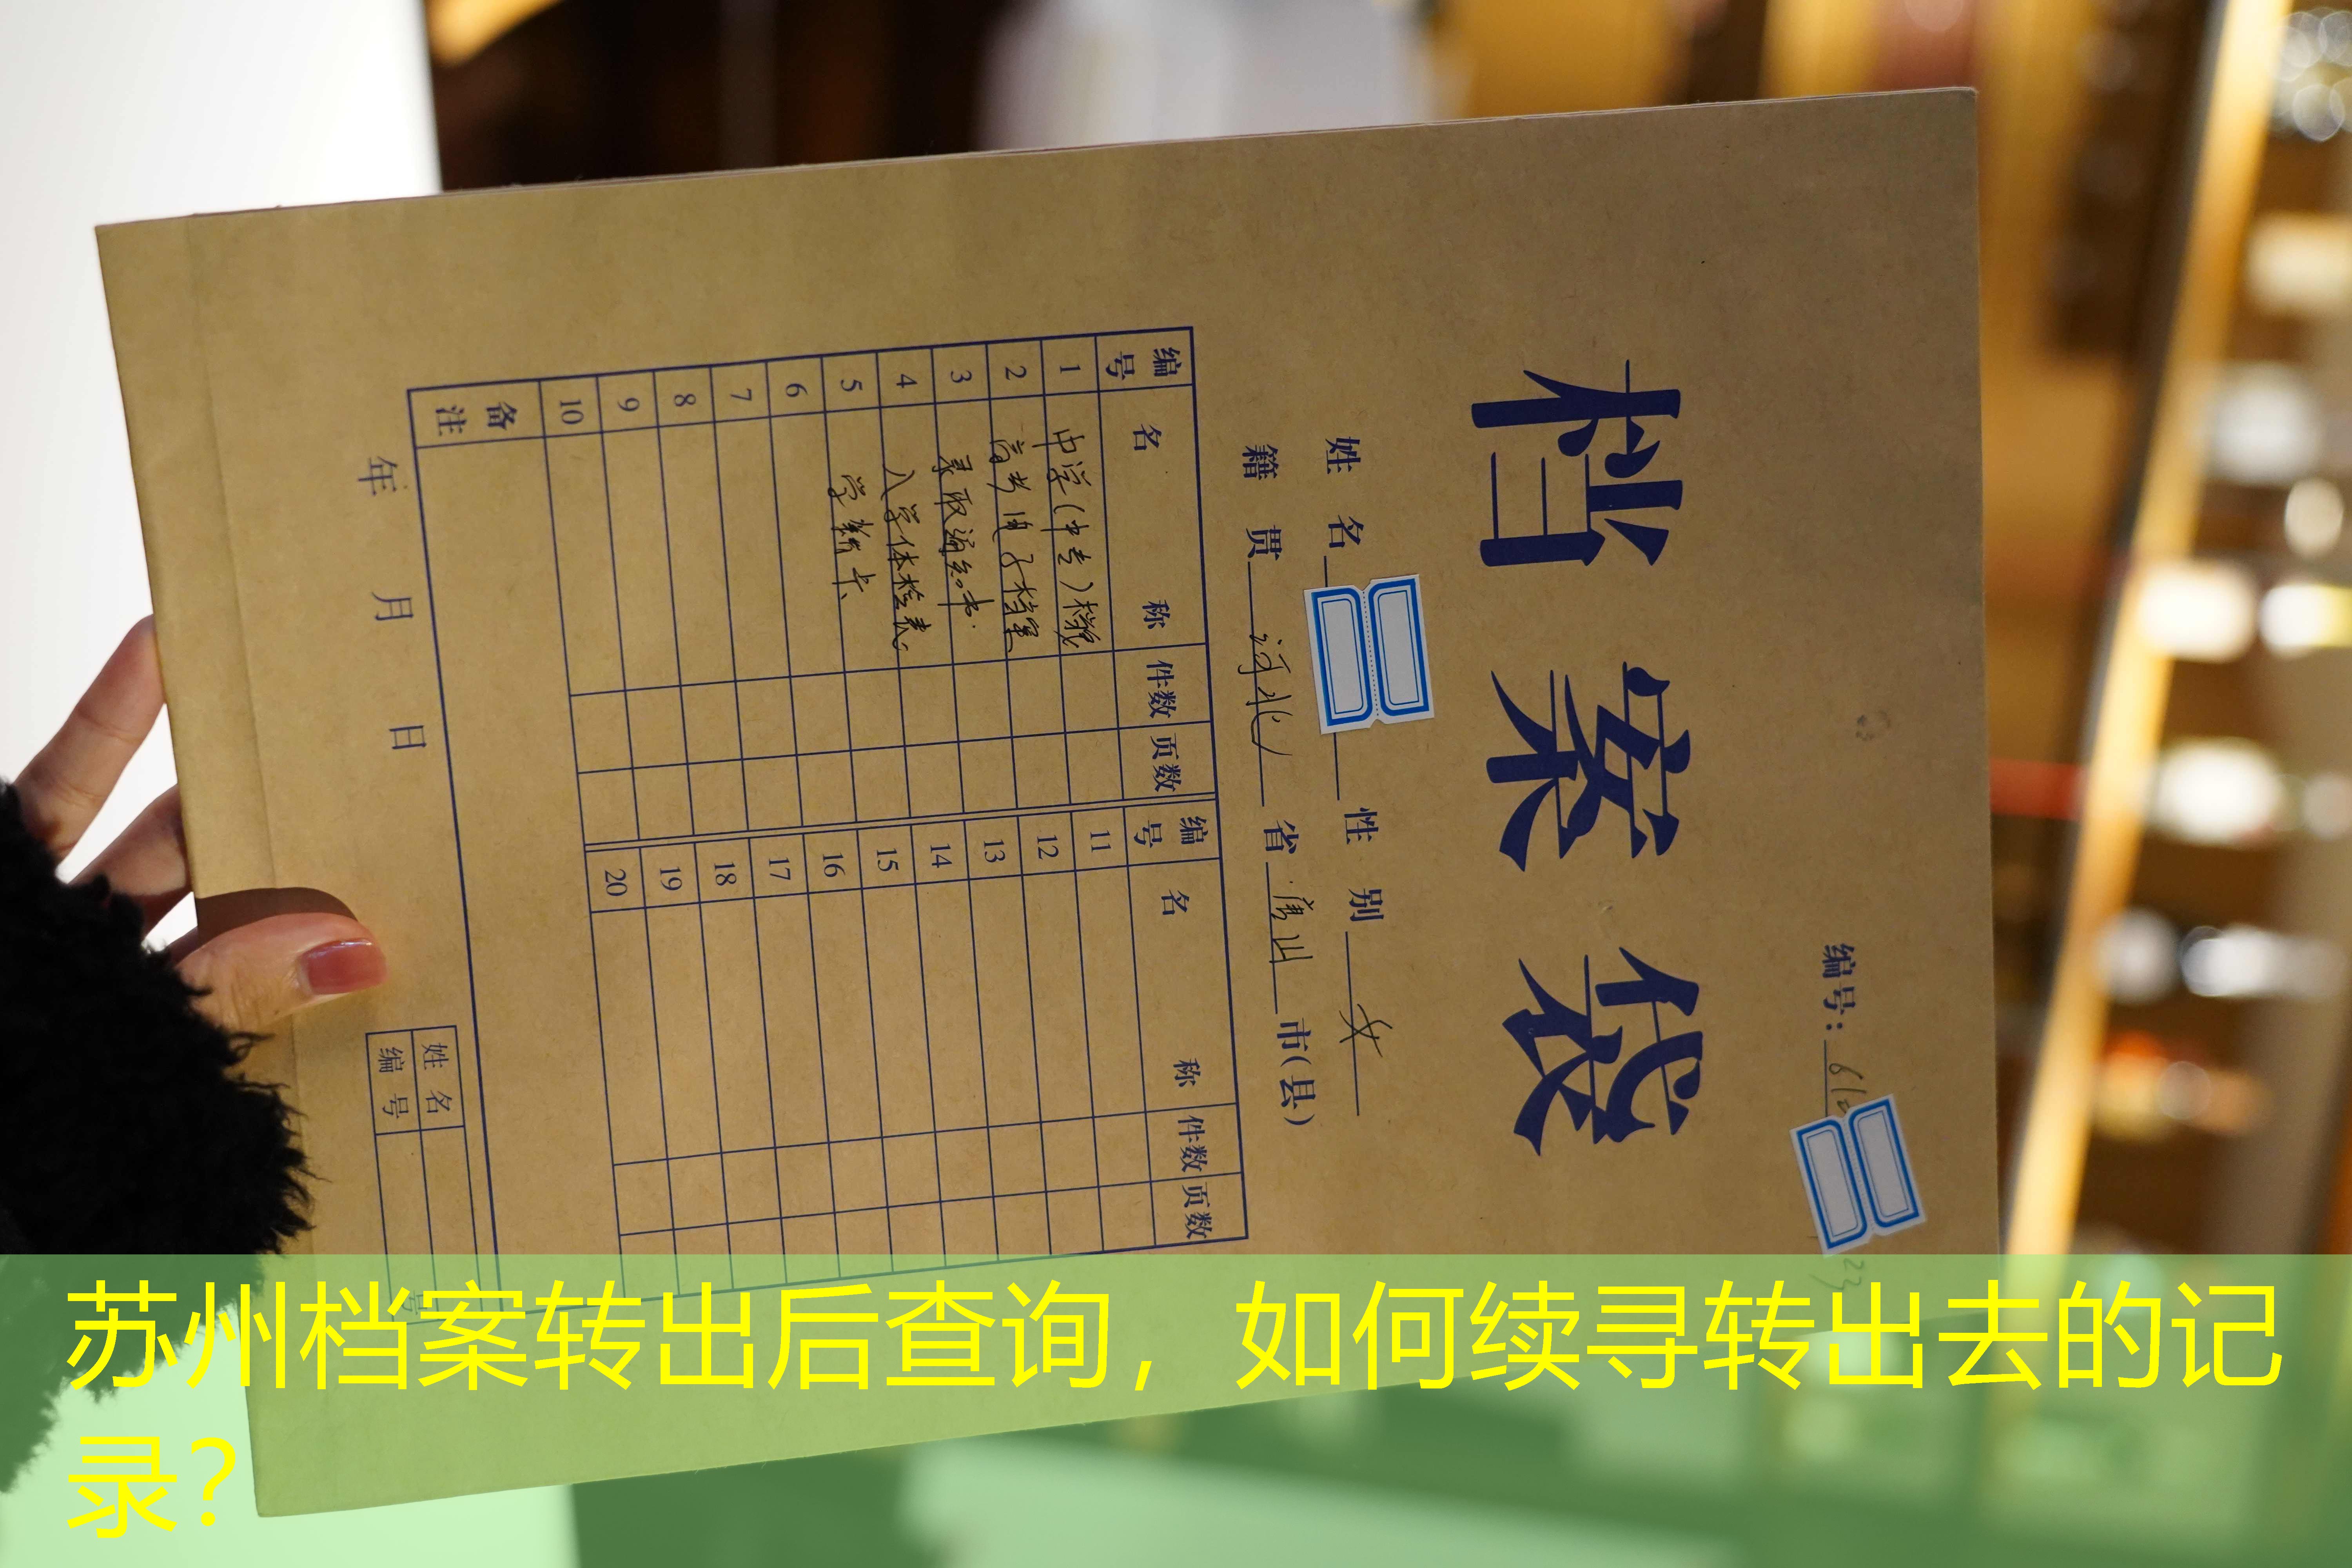 档案袋
编号: 6
姓名 性别 女
籍贯 河北 省 唐山 市(县)
编号 名称 件数 页数 编号 名称 件数 页数
1 中学(中专)档案 11
2 高考电子档案 12
3 录取通知书 13
4 入学体检表 14
5 学籍卡 15
6 16
7 17
8 18
9 19
10 20
备注
年 月 日
姓名
编号
苏州档案转出后查询，如何续寻转出去的记
录？